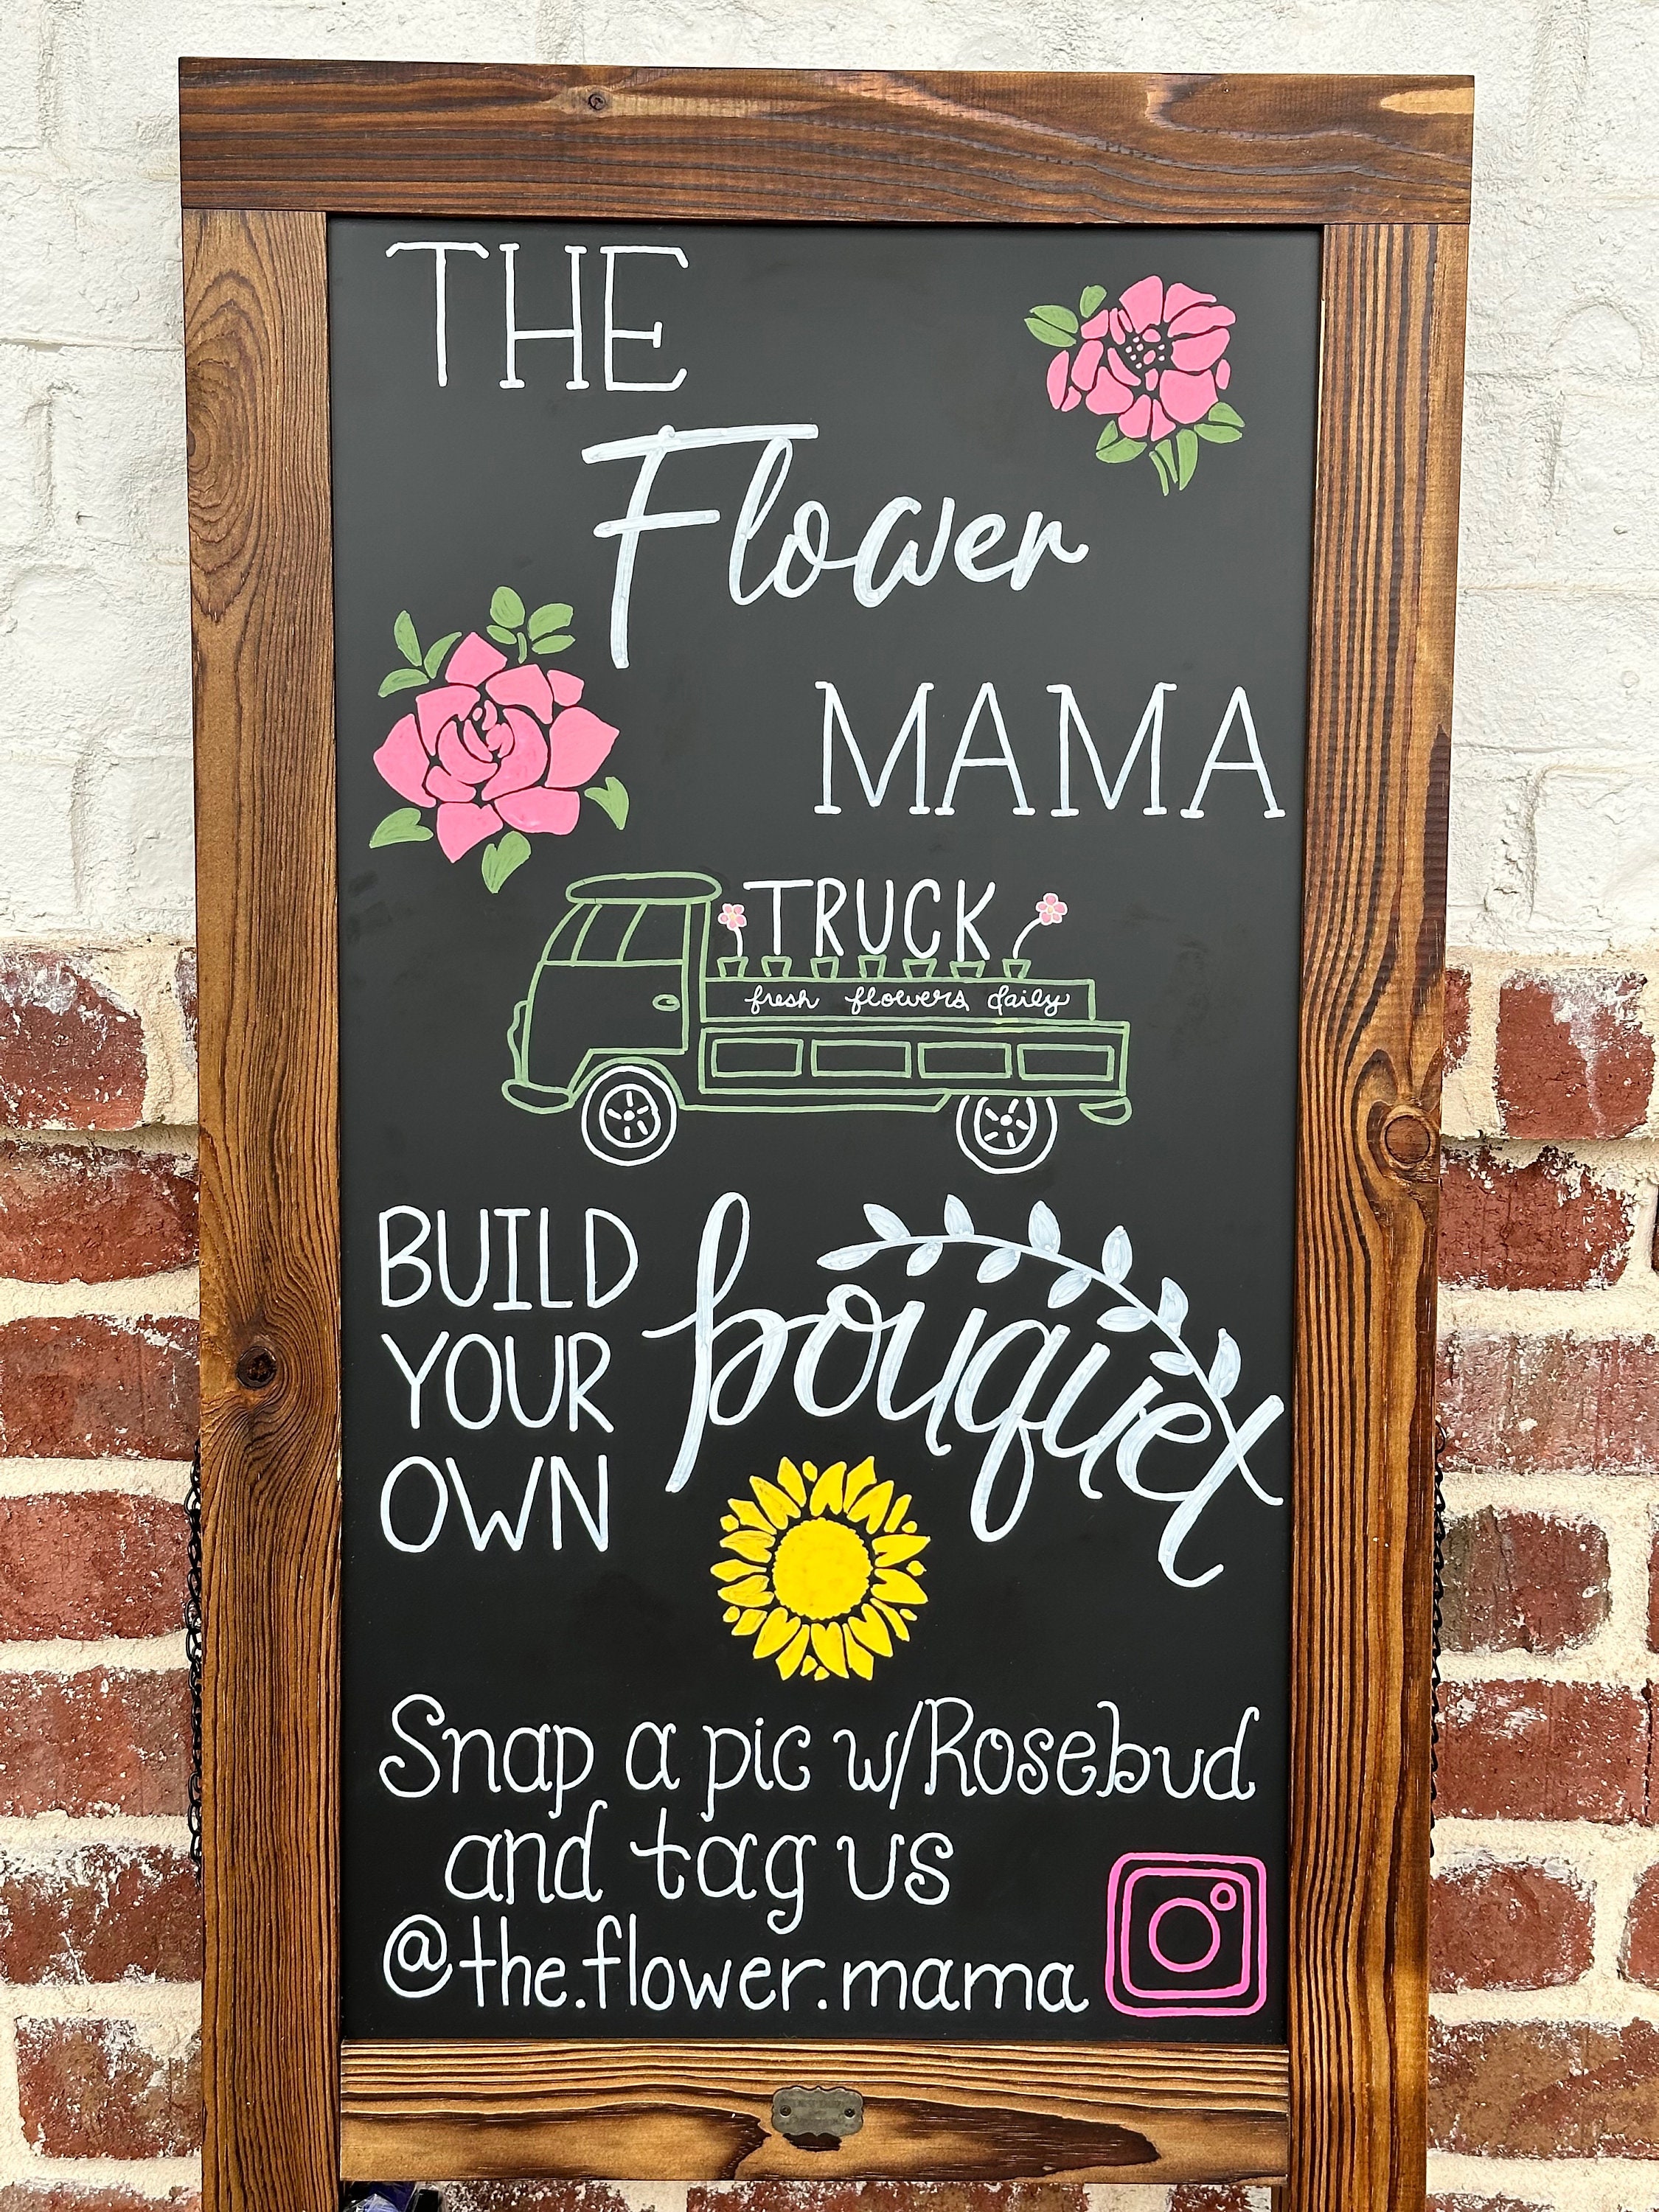 THE
Flower
MAMA
TRUCK
fresh flowers daily
BUILD
YOUR
OWN
bouquet
Snap a pic w/Rosebud
and tag us
@the.flower.mama